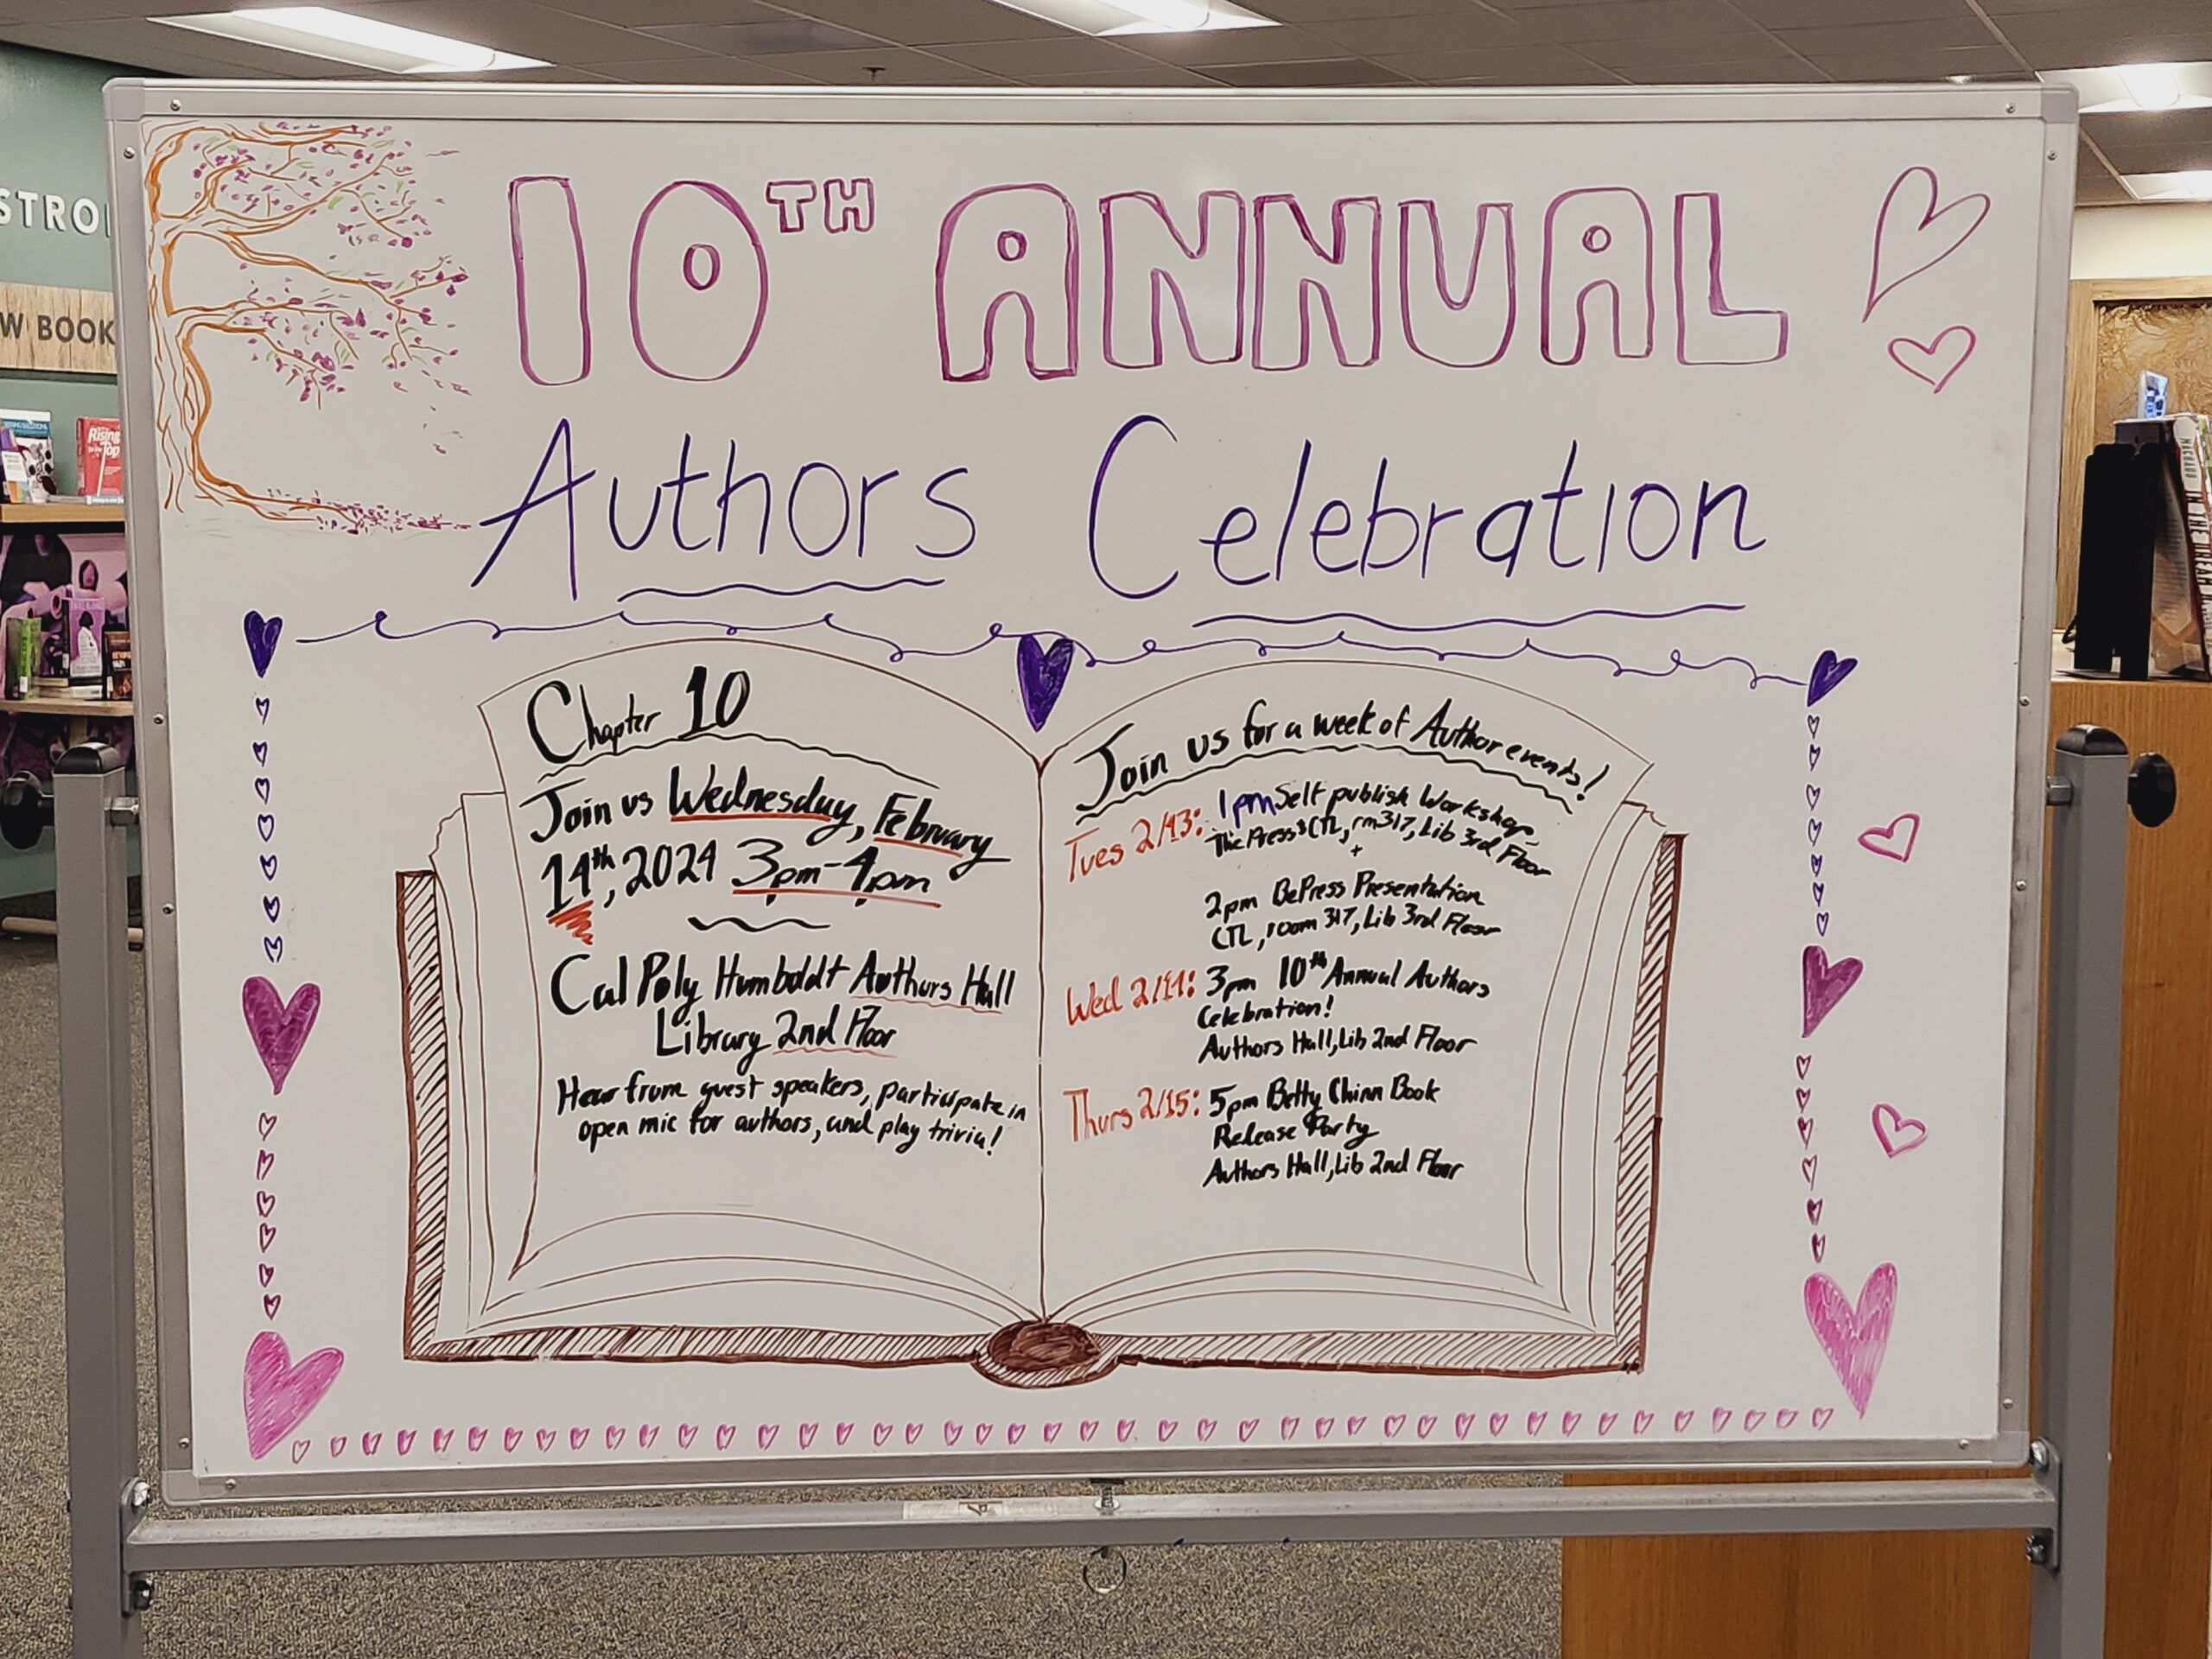 10TH ANNUAL
Authors Celebration
Chapter 10
Join us Wednesday, February
14th, 2024 3pm-4pm
Cal Poly Humboldt Authors Hall
Library 2nd Floor
Hear from guest speakers, participate in
open mic for authors, and play trivia!
Join us for a week of Author events!
Tues 2/13: 1pm Self publish Workshop,
The Press & CTL, rm 317, Lib 3rd Floor
+
2pm BePress Presentation
CTL, room 317, Lib 3rd Floor
Wed 2/14: 3pm 10th Annual Authors
Celebration!
Authors Hall, Lib 2nd Floor
Thurs 2/15: 5pm Betty Chinn Book
Release Party
Authors Hall, Lib 2nd Floor
STRO
W BOOK
Rising
Top